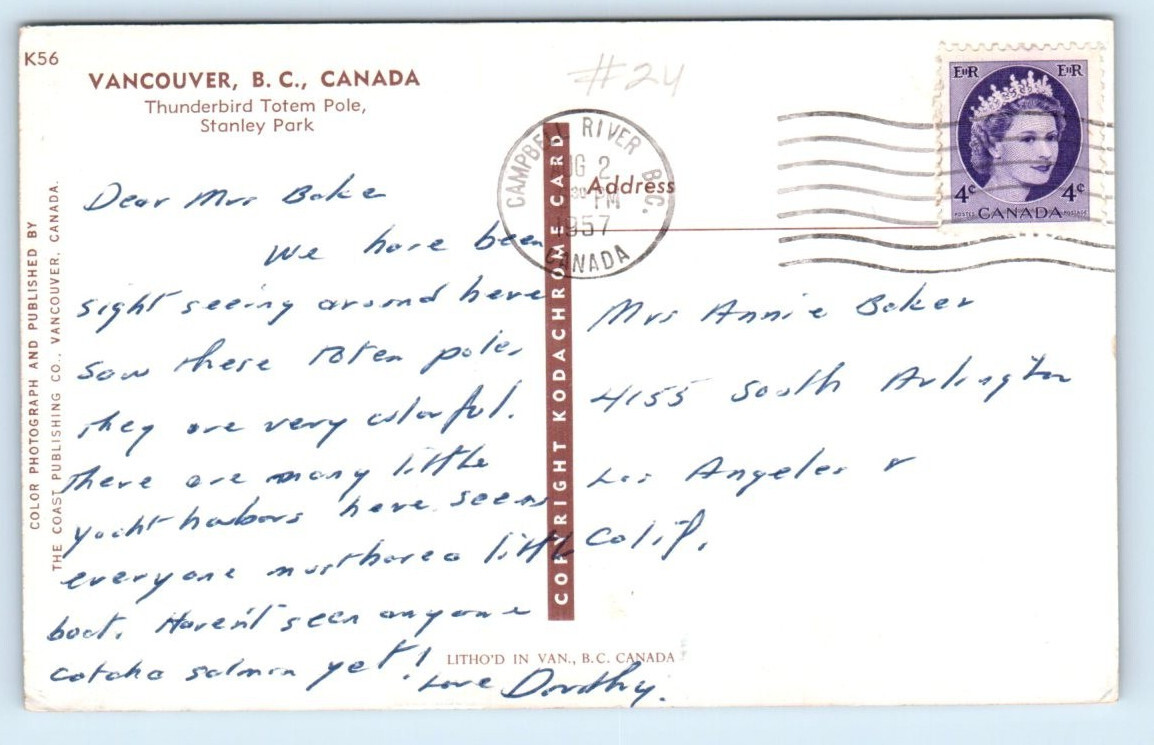 K56
VANCOUVER, B. C., CANADA
Thunderbird Totem Pole,
Stanley Park
#24
CAMPBELL RIVER B.C.
AUG 2
PM
1957
CANADA
EIIR EIIR
4¢ 4¢
POSTES CANADA POSTAGE
Address
COLOR PHOTOGRAPH AND PUBLISHED BY
THE COAST PUBLISHING CO., VANCOUVER, CANADA.
COPYRIGHT KODACHROME CARD
Dear Mrs Baker
We have been
sight seeing around here
saw these Totem poles
they are very colorful.
there are many little
yacht harbors here seems
everyone must have a little
boat. Haven't seen anyone
catch a salmon yet!
Love Dorothy.
Mrs Annie Baker
4155 South Arlington
Los Angeles
Calif.
LITHO'D IN VAN., B.C. CANADA